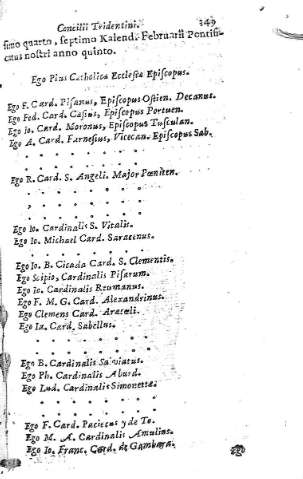 Concilii Tridentini. 349
simo quarto, septimo Kalend. Februarii Pontifi-
catus nostri anno quinto.
Ego Pius Catholica Ecclesia Episcopus.
Ego F. Card. Pisanus, Episcopus Ostien. Decanus.
Ego Fed. Card. Casius, Episcopus Portuen.
Ego Io. Card. Moronus, Episcopus Tusculan.
Ego A. Card. Farnesius, Vicecan. Episcopus Sab.
Ego R. Card. S. Angeli. Major Pœniten.
Ego Io. Cardinalis S. Vitalis.
Ego Io. Michael Card. Saracenus.
Ego Io. B. Cicada Card. S. Clementis.
Ego Scipio, Cardinalis Pisarum.
Ego Io. Cardinalis Reumanus.
Ego F. M. G. Card. Alexandrinus.
Ego Clemens Card. Aracœli.
Ego Ia. Card. Sabellus.
Ego B. Cardinalis Salviatus.
Ego Ph. Cardinalis Aburd.
Ego Lud. Cardinalis Simonetta.
Ego F. Card. Paciecus y de To.
Ego M. A. Cardinalis Amulius.
Ego Io. Franc. Card. de Gambara.
Ego